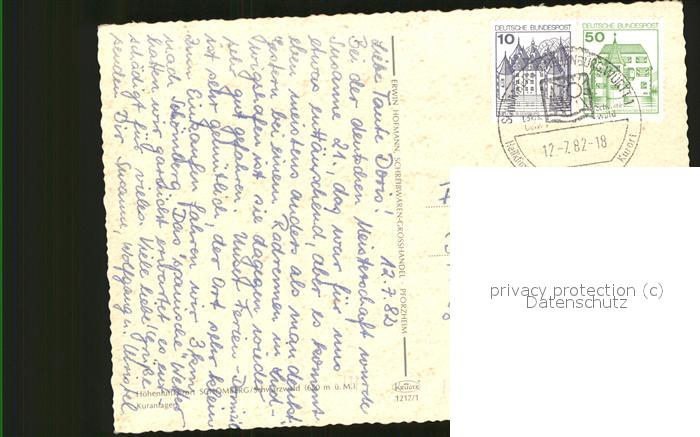 12.7.82
Liebe Tante Doris!
Bei der deutschen Meisterschaft wurde
Susanne 21., das war für uns
etwas enttäuschend, aber es kommt
eben meistens anders als man denkt.
Gestern bei einem Radrennen in Lud-
wigshafen ist sie dagegen wieder
sehr gut gefahren. Unser Ferien
ist sehr gemütlich, der Ort sehr klein
Zum Einkaufen fahren wir 3 km
nach Schömberg. Das "spanische" Wetter
hatten wir gar nicht erwartet, es ent-
schädigt für vieles. Viele liebe Grüße
senden Dir Susanne, Wolfgang u.
Höhenluftkurort SCHÖMBERG/Schwarzwald (650 m ü. M.)
Kuranlagen
ERWIN HOFMANN, SCHREIBWAREN-GROSSHANDEL PFORZHEIM
KRÜGER
1217/1
10 DEUTSCHE BUNDESPOST
50 DEUTSCHE BUNDESPOST
12.-7.82-18
Kurort
privacy protection (c)
Datenschutz